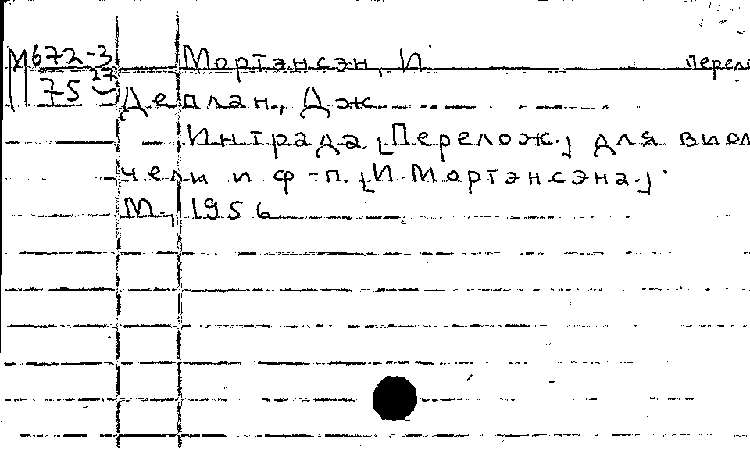 М 672-3 Мортэнсэн, И. перел
75 17
Деплан, Дж.
Интрада [Перелож.] для виол
чели и ф-п. [И. Мортэнсэна.].
М., 1956